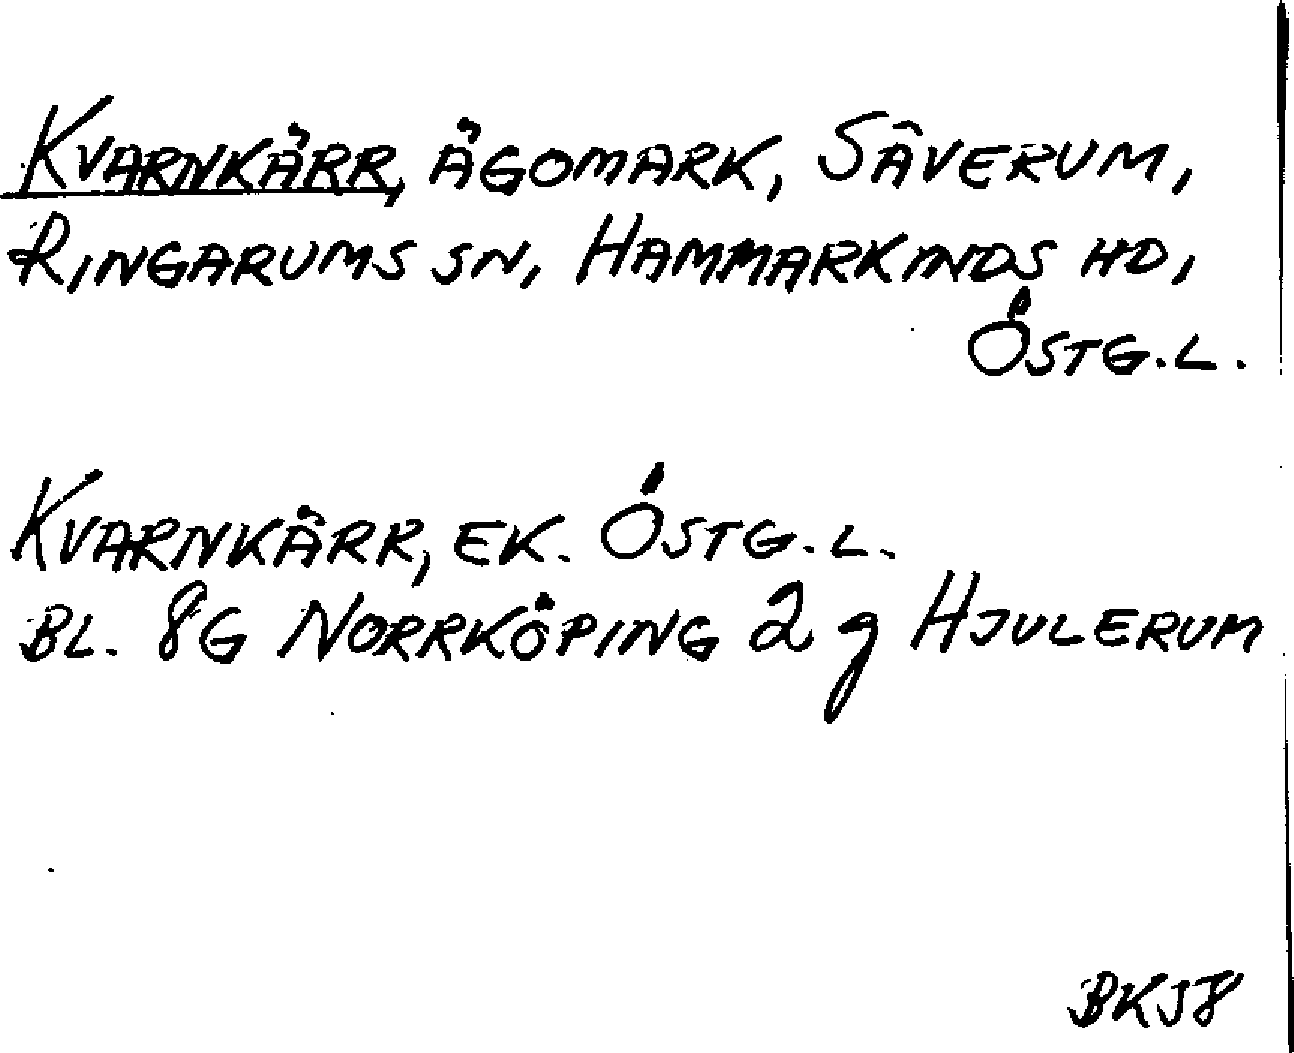 KVARNKÄRR, ÄGOMARK, SÄVERUM,
RINGARUMS SN, HAMMARKINDS HD,
ÖSTG.L.
KVARNKÄRR, EK. ÖSTG.L.
BL. 8G NORRKÖPING 2 g HJULERUM
BKJ8